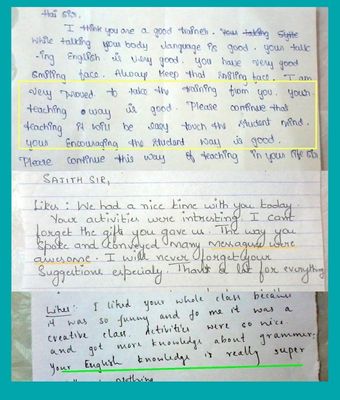 Hai Sir,
I think you are a good trainer.
while talking your body language is good. your talk
-ing English is very good. you have very good
smiling face. Always keep that smiling face. I am
very proved to take the training from you. your
teaching way is good. Please continue that
teaching it will be easy touch the student mind.
your Encouraging the student way is good.
Please continue this way of teaching in your life sir
SAJITH SIR,
Likes : We had a nice time with you today.
Your activities were intresting. I cant
forget the gift you gave us. The way you
spoke and conveyed many messages were
awesome. I will never forget your
Suggestions especialy. Thank a lot for everything
Likes: I liked your whole class because
it was so funny and fo me it was a
creative class. Activities were so nice
and got more knowledge about grammer.
Your English knowledge is really super